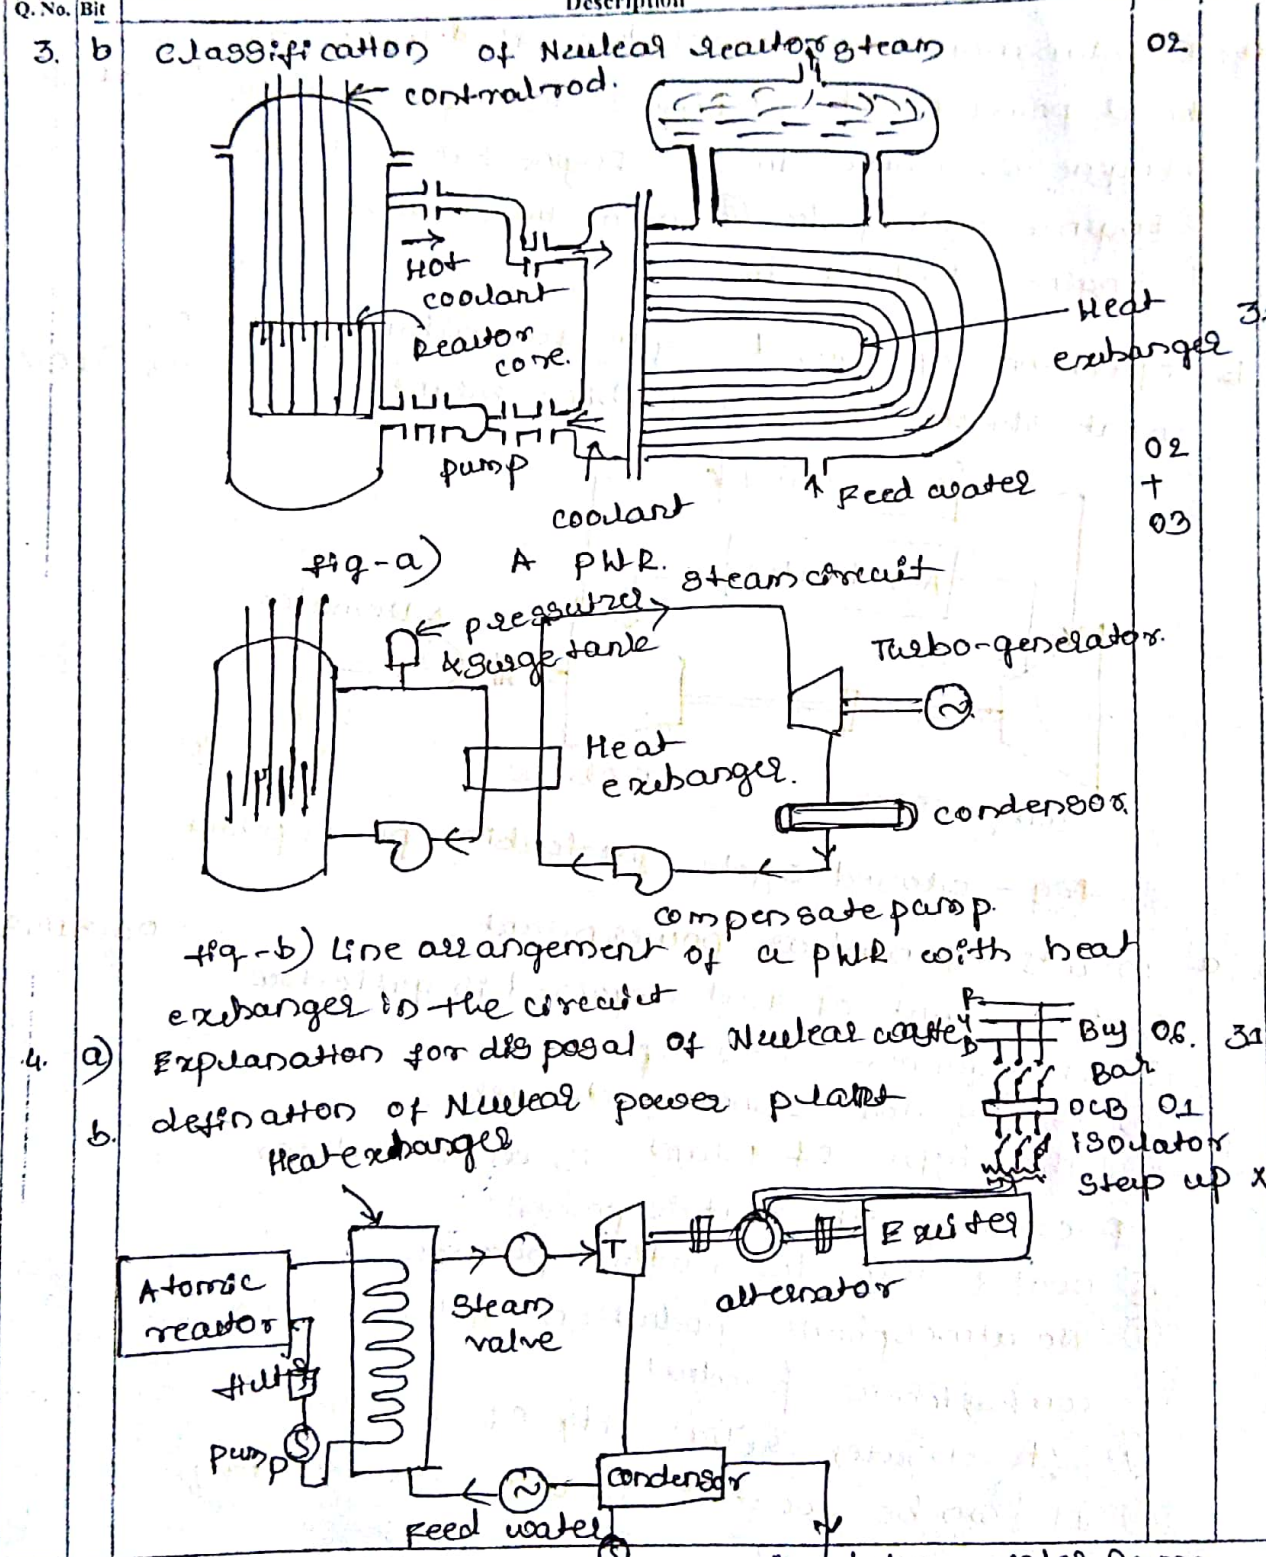 Q. No. Bit Description
3. b Classification of Nuclear reactor steam 02
control rod.
Hot
coolant
Reactor
core.
Heat
exchanger 3.
pump
coolant
Feed water
02
+
03
fig-a) A PWR.
steam circuit
pressurizer
& surge tank
Turbo-generator.
Heat
exchanger.
condensor
compensate pump.
fig-b) Line arrangement of a PWR with heat
exchanger in the circuit
4. a) Explanation for disposal of Nuclear waste 06. 31
R
Y
B
Bus
Bar
b. defination of Nuclear power plant
OCB 01
isolator
Step up x
Heat exchanger
Atomic
reactor
Steam
valve
T
alternator
Exciter
pump
condensor
Feed water